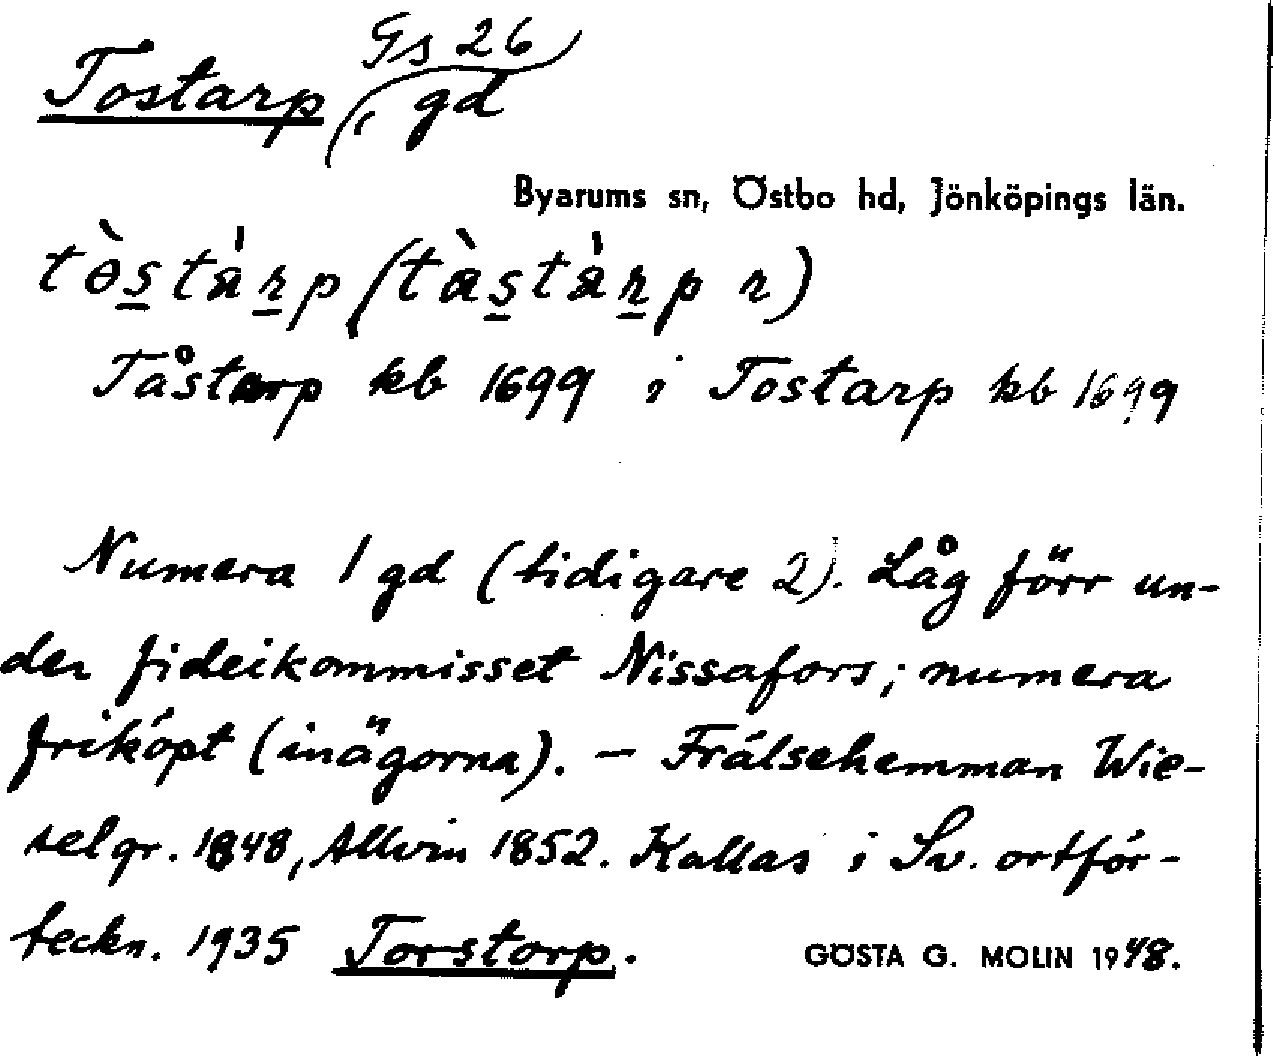 Gs 26
Tostarp, gd
Byarums sn, Östbo hd, Jönköpings län.
tòstàrp (tàstàrp r)
Tåstarp kb 1699 ; Tostarp kb 1699
Numera 1 gd (tidigare 2). Låg förr un-
der fideikommisset Nissafors; numera
friköpt (inägorna). – Frälsehemman Wie-
selgr. 1848, Allvin 1852. Kallas i Sv. ortför-
teckn. 1935 Torstorp.
GÖSTA G. MOLIN 1948.